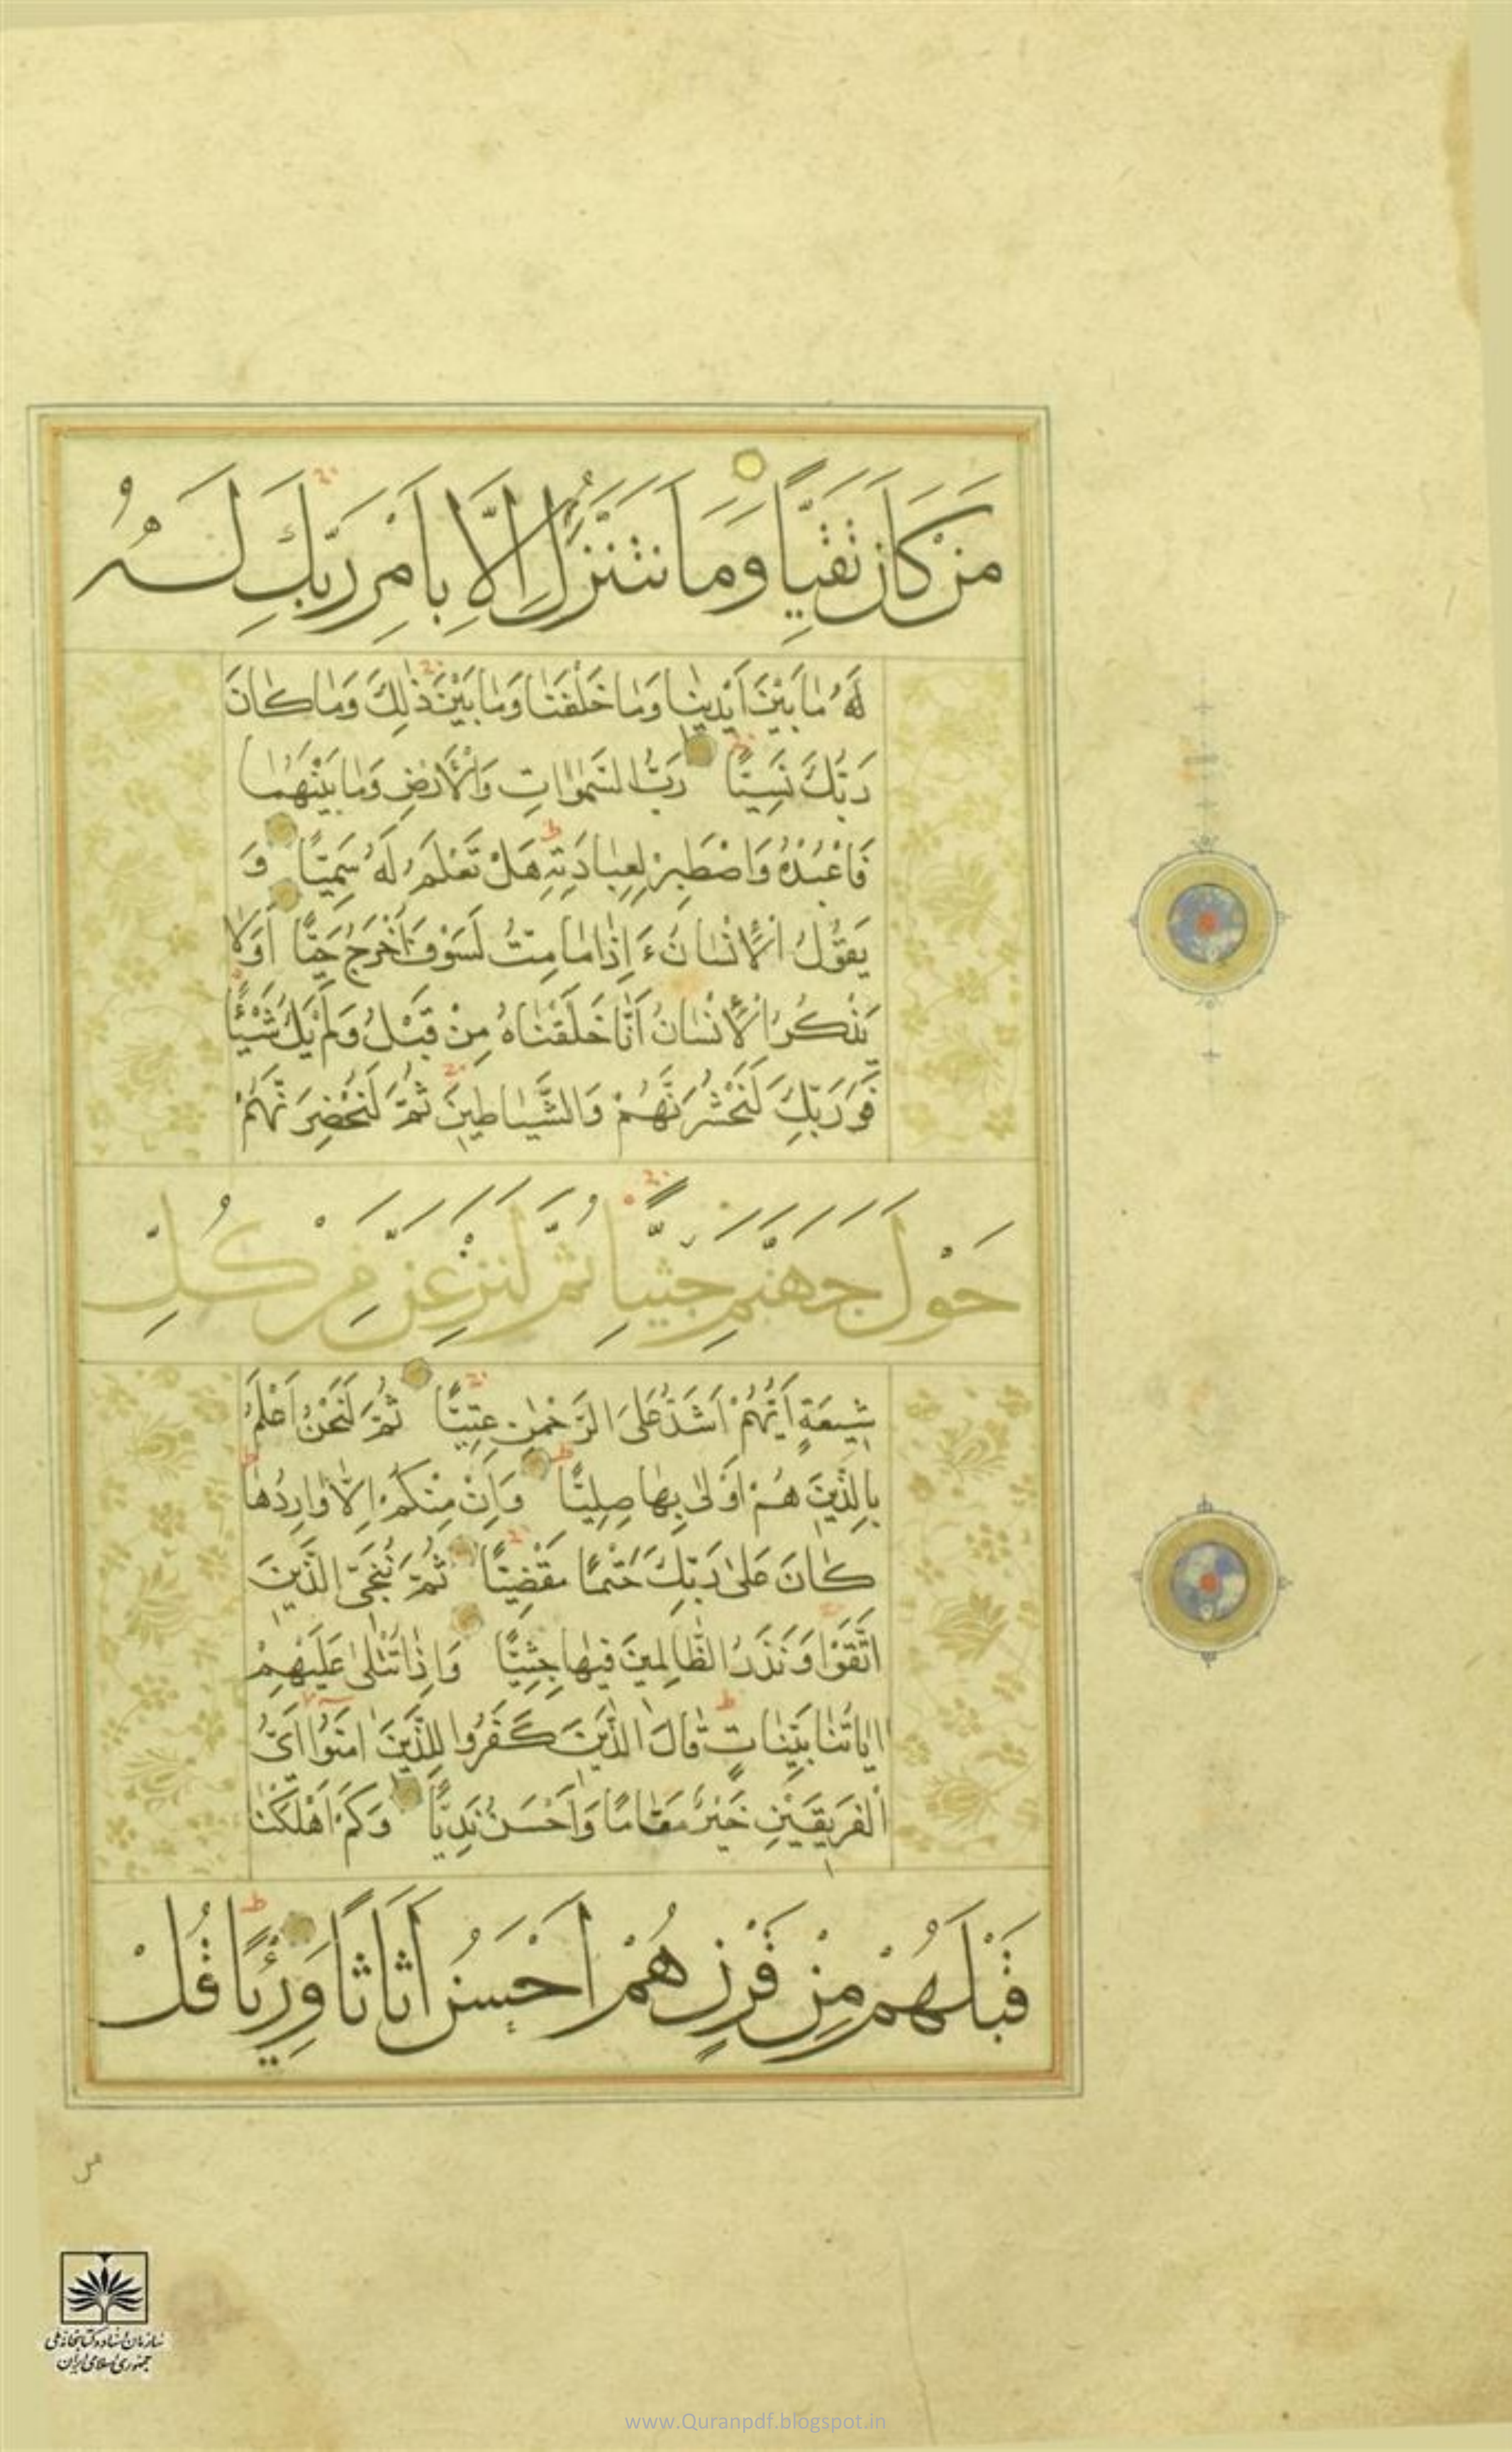 مَنْ كَانَ تَقِيًّا وَمَا نَتَنَزَّلُ اِلَّا بِاَمْرِ رَبِّكَ لَهُ
لَهُ مَا بَيْنَ اَيْدِينَا وَمَا خَلْفَنَا وَمَا بَيْنَ ذٰلِكَ وَمَا كَانَ
رَبُّكَ نَسِيًّا رَبُّ السَّمٰوَاتِ وَالْاَرْضِ وَمَا بَيْنَهُمَا
فَاعْبُدْهُ وَاصْطَبِرْ لِعِبَادَتِهِ هَلْ تَعْلَمُ لَهُ سَمِيًّا وَ
يَقُولُ الْاِنْسَانُ ءَاِذَا مَا مِتُّ لَسَوْفَ اُخْرَجُ حَيًّا اَوَلَا
يَذْكُرُ الْاِنْسَانُ اَنَّا خَلَقْنَاهُ مِنْ قَبْلُ وَلَمْ يَكُ شَيْئًا
فَوَرَبِّكَ لَنَحْشُرَنَّهُمْ وَالشَّيَاطِينَ ثُمَّ لَنُحْضِرَنَّهُمْ
حَوْلَ جَهَنَّمَ جِثِيًّا ثُمَّ لَنَنْزِعَنَّ مِنْ كُلِّ
شِيعَةٍ اَيُّهُمْ اَشَدُّ عَلَى الرَّحْمٰنِ عِتِيًّا ثُمَّ لَنَحْنُ اَعْلَمُ
بِالَّذِينَ هُمْ اَوْلٰى بِهَا صِلِيًّا وَاِنْ مِنْكُمْ اِلَّا وَارِدُهَا
كَانَ عَلٰى رَبِّكَ حَتْمًا مَقْضِيًّا ثُمَّ نُنَجِّى الَّذِينَ
اتَّقَوْا وَنَذَرُ الظَّالِمِينَ فِيهَا جِثِيًّا وَاِذَا تُتْلٰى عَلَيْهِمْ
اٰيَاتُنَا بَيِّنَاتٍ قَالَ الَّذِينَ كَفَرُوا لِلَّذِينَ اٰمَنُوا اَىُّ
الْفَرِيقَيْنِ خَيْرٌ مَقَامًا وَاَحْسَنُ نَدِيًّا وَكَمْ اَهْلَكْنَا
قَبْلَهُمْ مِنْ قَرْنٍ هُمْ اَحْسَنُ اَثَاثًا وَرِئْيًا قُلْ
سازمان اسناد و کتابخانه ملی
جمهوری اسلامی ایران
www.Quranpdf.blogspot.in